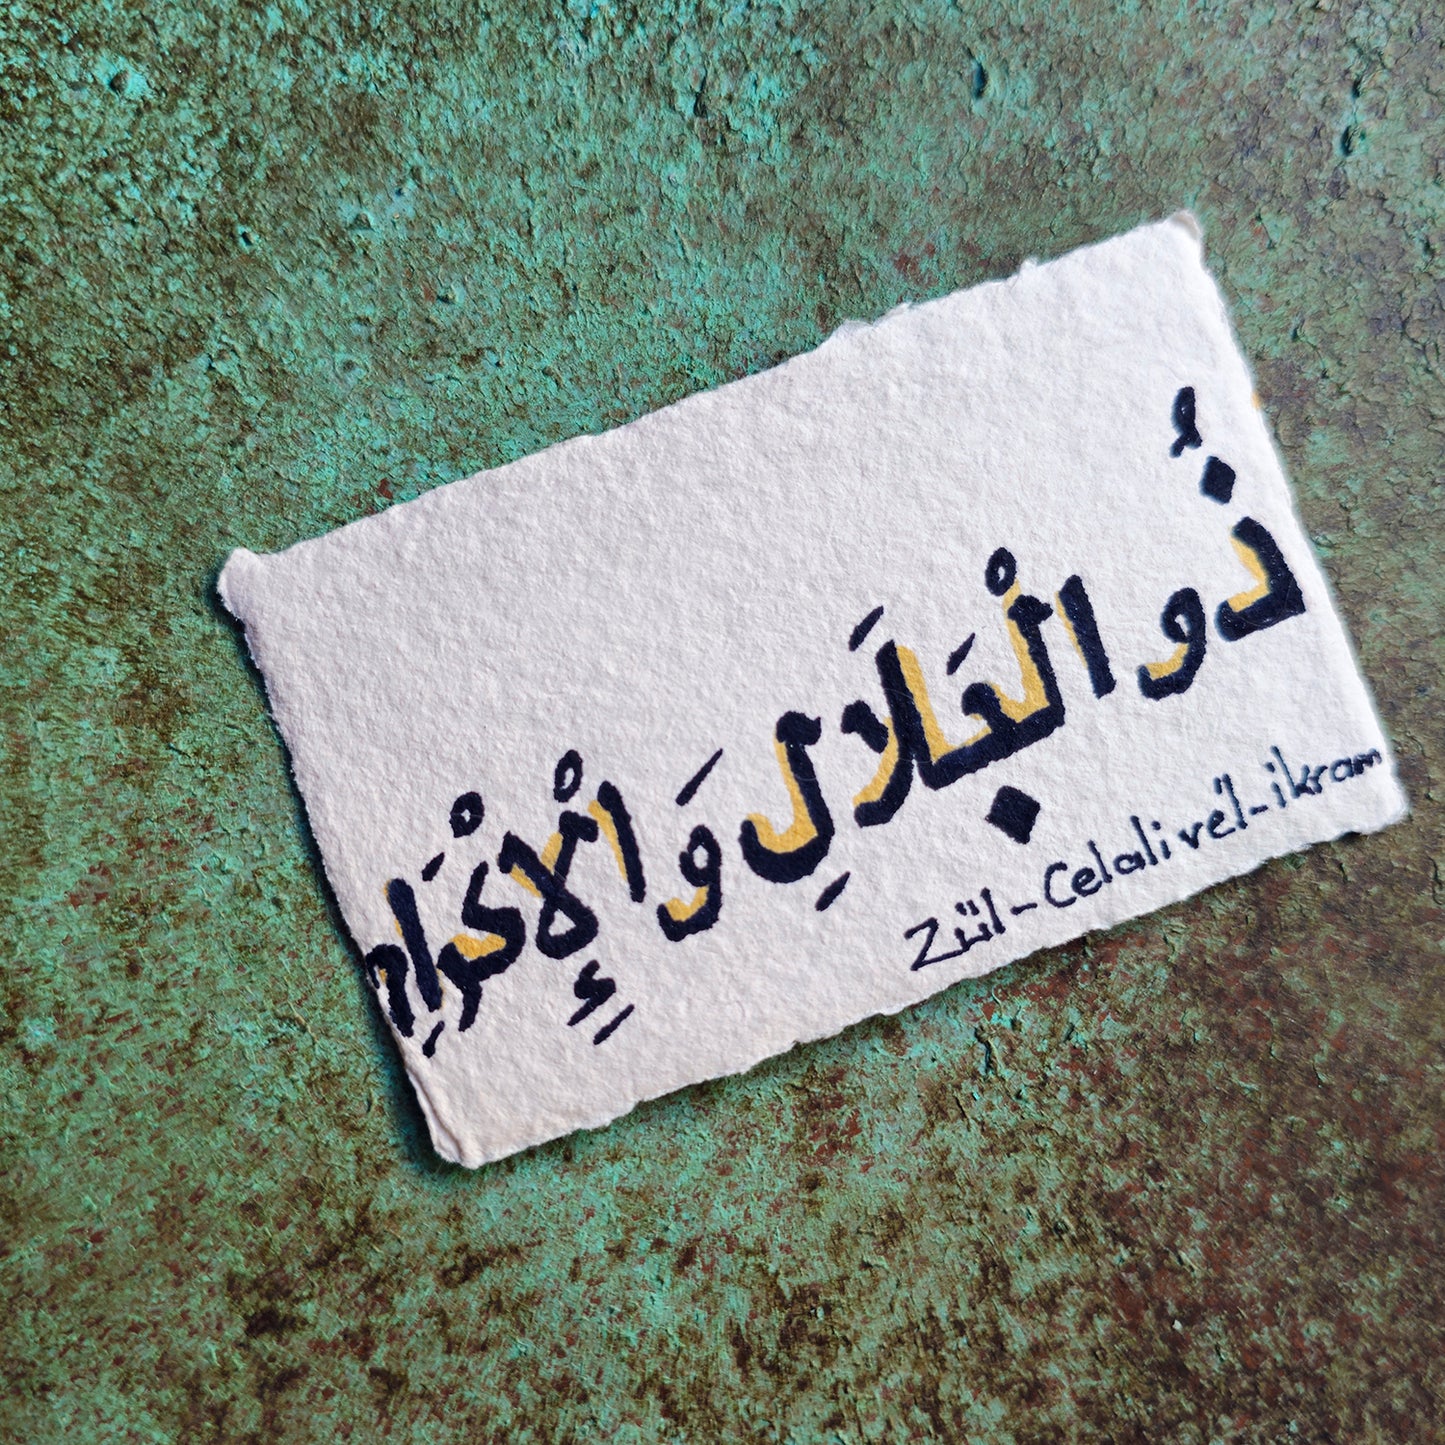 ذُو الْجَلَالِ وَالْإِكْرَامِ
Zül-Celali vé'l-ikram